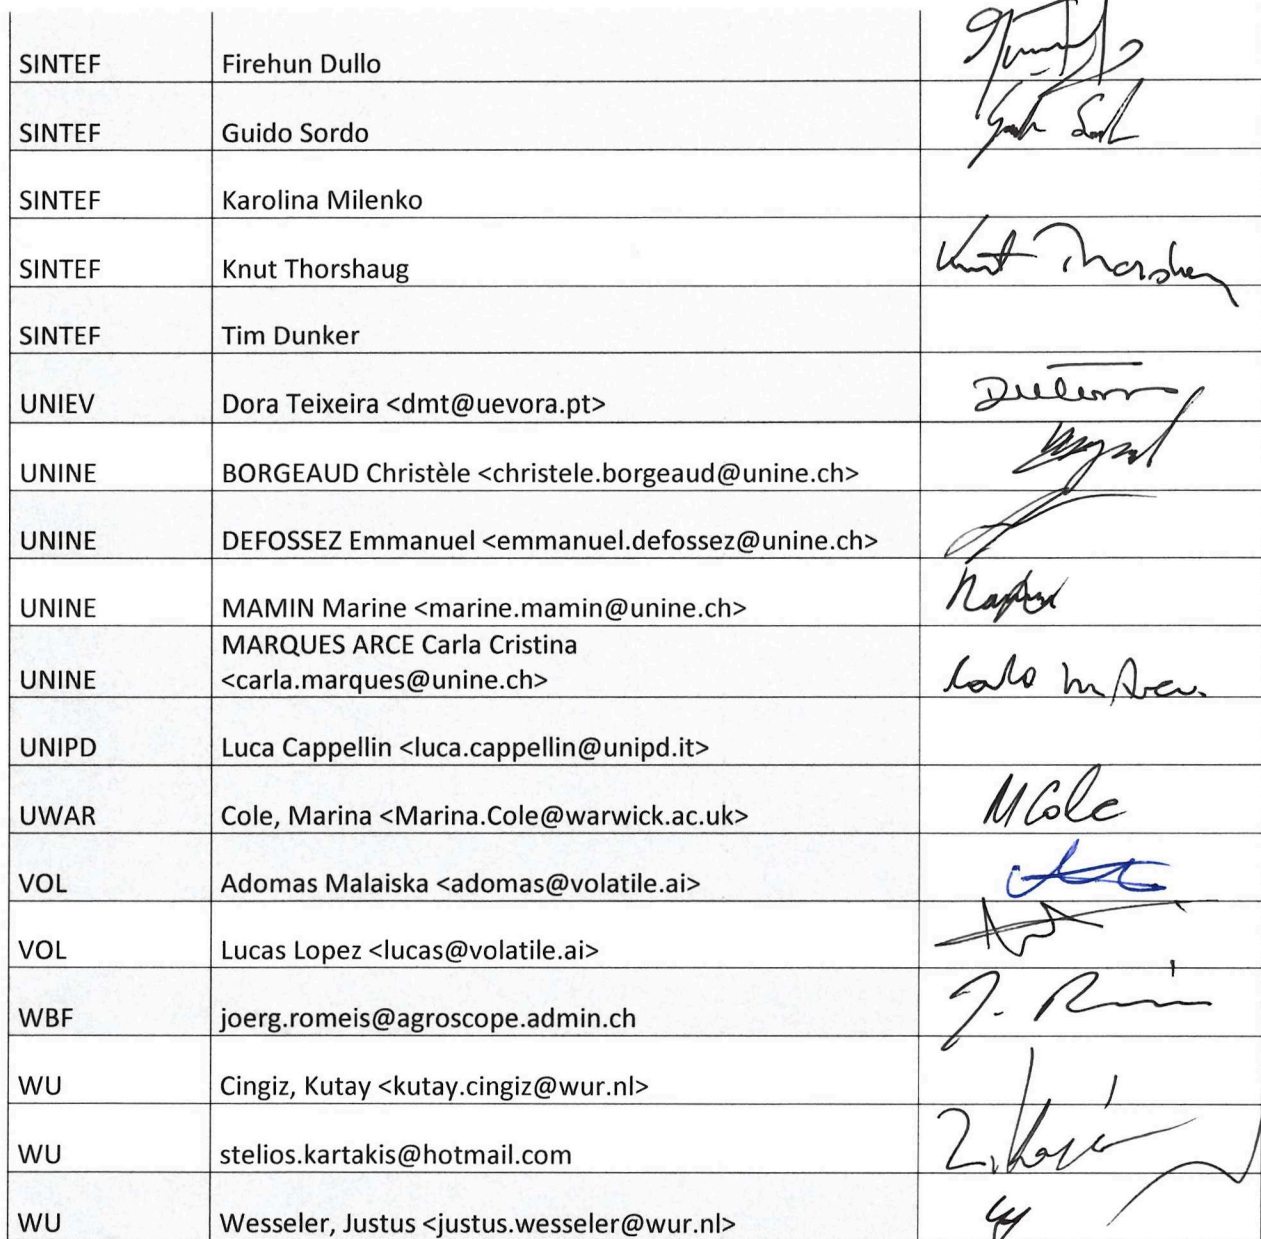 SINTEF Firehun Dullo
SINTEF Guido Sordo
SINTEF Karolina Milenko
SINTEF Knut Thorshaug Knut Thorshaug
SINTEF Tim Dunker
UNIEV Dora Teixeira <dmt@uevora.pt>
UNINE BORGEAUD Christèle <christele.borgeaud@unine.ch>
UNINE DEFOSSEZ Emmanuel <emmanuel.defossez@unine.ch>
UNINE MAMIN Marine <marine.mamin@unine.ch>
MARQUES ARCE Carla Cristina
UNINE <carla.marques@unine.ch>
UNIPD Luca Cappellin <luca.cappellin@unipd.it>
UWAR Cole, Marina <Marina.Cole@warwick.ac.uk> M Cole
VOL Adomas Malaiska <adomas@volatile.ai>
VOL Lucas Lopez <lucas@volatile.ai>
WBF joerg.romeis@agroscope.admin.ch
WU Cingiz, Kutay <kutay.cingiz@wur.nl>
WU stelios.kartakis@hotmail.com
WU Wesseler, Justus <justus.wesseler@wur.nl>